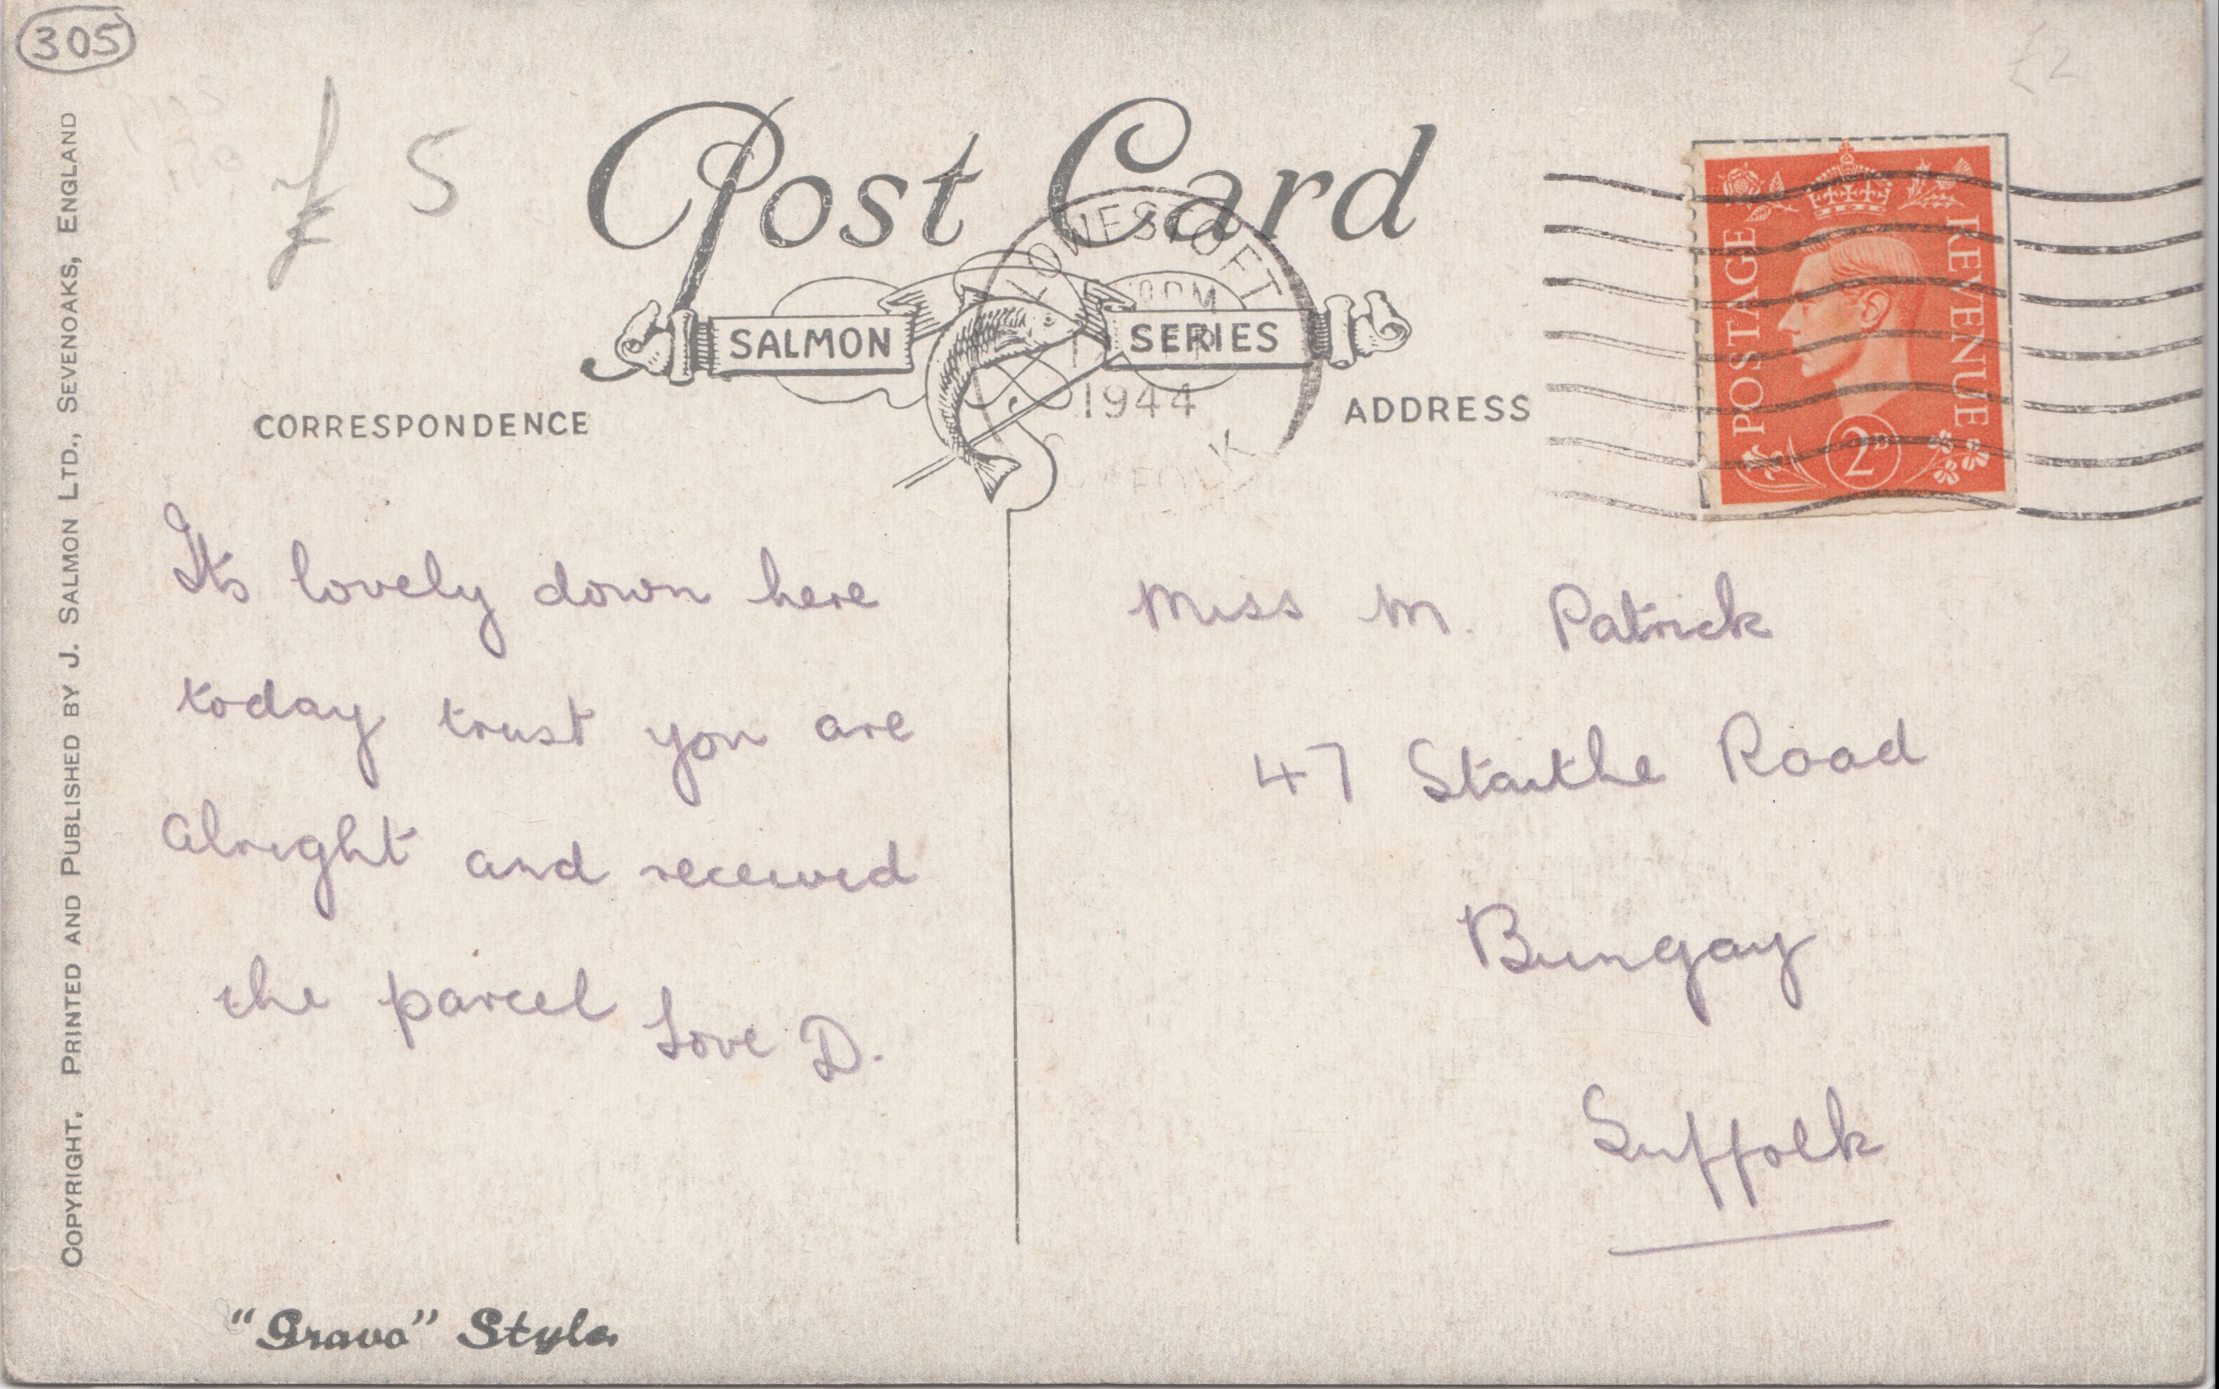 305
£ 5
£2
Post Card
SALMON SERIES
LOWESTOFT
1944
SUFFOLK
POSTAGE REVENUE
2D
CORRESPONDENCE
ADDRESS
Its lovely down here
today trust you are
alright and received
the parcel Love D.
Miss M. Patrick
47 Staithe Road
Bungay
Suffolk
COPYRIGHT. PRINTED AND PUBLISHED BY J. SALMON LTD., SEVENOAKS, ENGLAND
"Gravo" Style.